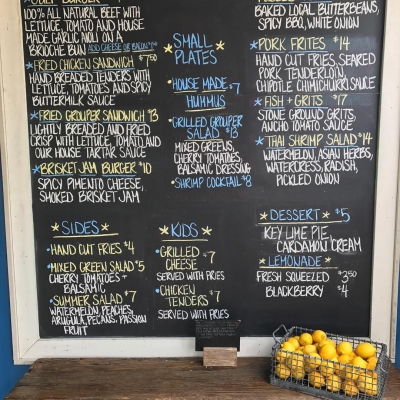 100% ALL NATURAL BEEF WITH
LETTUCE, TOMATO AND HOUSE
MADE GARLIC MOLL ON A
BRIOCHE BUN ADD CHEESE OR BACON
FRIED CHICKEN SANDWICH $7.50
HAND BREADED TENDERS WITH
LETTUCE, TOMATOES AND SPICY
BUTTERMILK SAUCE
FRIED GROUPER SANDWICH $13
LIGHTLY BREADED AND FRIED
CRISP WITH LETTUCE, TOMATO, AND
OUR HOUSE TARTAR SAUCE
BRISKET JAM BURGER $10
SPICY PIMENTO CHEESE,
SMOKED BRISKET JAM
SIDES
HAND CUT FRIES $4
MIXED GREEN SALAD $5
CHERRY TOMATOES +
BALSAMIC
SUMMER SALAD $7
WATERMELON, PEACHES,
ARUGULA, PECANS, PASSION
FRUIT
SMALL
PLATES
HOUSE MADE $7
HUMMUS
GRILLED GROUPER
SALAD $13
MIXED GREENS,
CHERRY TOMATOES,
BALSAMIC DRESSING
SHRIMP COCKTAIL $8
KIDS
GRILLED $7
CHEESE
SERVED WITH FRIES
CHICKEN $7
TENDERS
SERVED WITH FRIES
BAKED LOCAL BUTTERBEANS,
SPICY BBQ, WHITE ONION
PORK FRITES $14
HAND CUT FRIES, SEARED
PORK TENDERLOIN,
CHIPOTLE CHIMICHURRI SAUCE
FISH + GRITS $17
STONE GROUND GRITS,
ANCHO TOMATO SAUCE
THAI SHRIMP SALAD $14
WATERMELON, ASIAN HERBS,
WATERCRESS, RADISH,
PICKLED ONION
DESSERT $5
KEY LIME PIE,
CARDAMOM CREAM
LEMONADE
FRESH SQUEEZED $3.50
BLACKBERRY $4